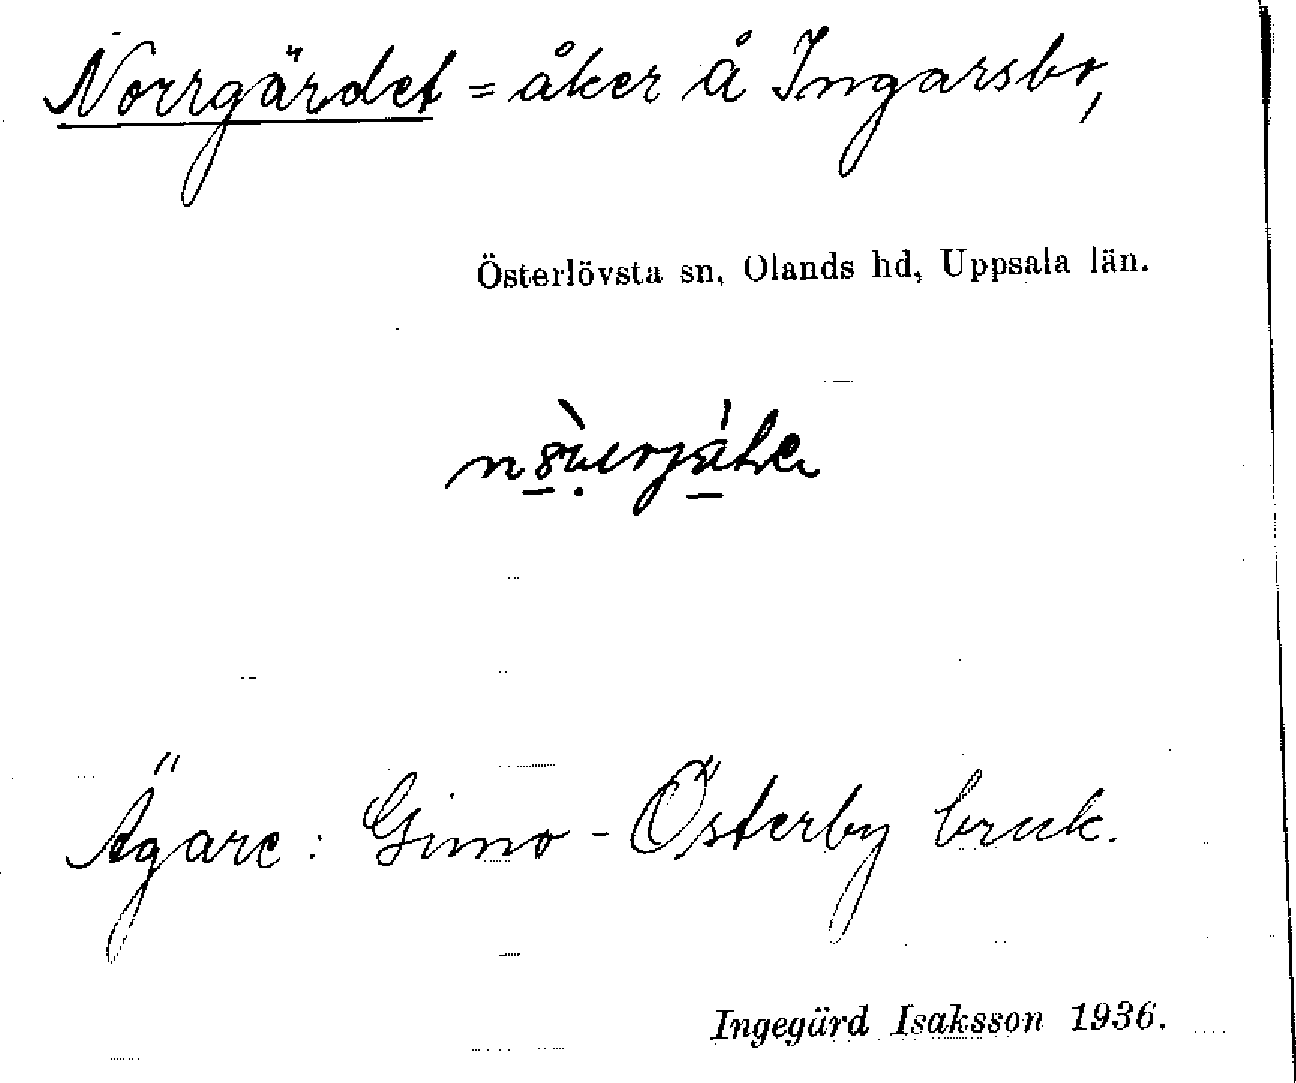 Norrgärdet = åker å Ingarsbo,
Österlövsta sn, Olands hd, Uppsala län.
Ägare: Gimo-Österby bruk.
Ingegärd Isaksson 1936.